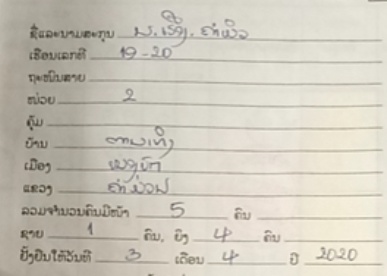 ຊື່ແລະນາມສະກຸນ
ເຮືອນເລກທີ 19-20
ຖະໜົນສາຍ
ໜ່ວຍ 2
ຄຸ້ມ
ບ້ານ
ເມືອງ
ແຂວງ ຄຳມ່ວນ
ລວມຈຳນວນຄົນມີໜ້າ 5 ຄົນ
ຊາຍ 1 ຄົນ, ຍິງ 4 ຄົນ
ຢັ້ງຢືນໃຫ້ວັນທີ 3 ເດືອນ 4 ປີ 2020